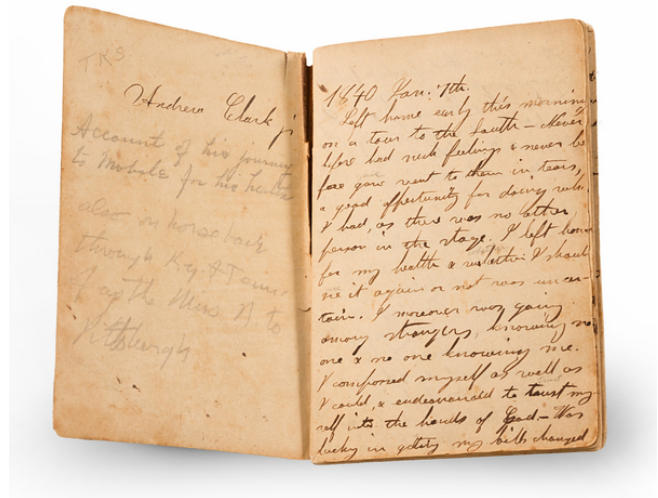 TKS
Andrew Clark jr
Account of his journey
to Mobile for his health
also on horseback
through Ky. & Tenn.
& up the Miss R to
Pittsburgh
1840 Jan. 7th.
Left home early this morning
on a tour to the South – Never
before had such feelings & never be
fore gave vent to them in tears,
a good opportunity for doing which
I had, as there was no other
person in the stage. I left home
for my health & whether I should
see it again or not was uncer-
tain. I moreover was going
among strangers, knowing no
one & no one knowing me.
I composed myself as well as
I could, & endeavoured to trust my
self into the hands of God – Was
lucky in getting my bills changed